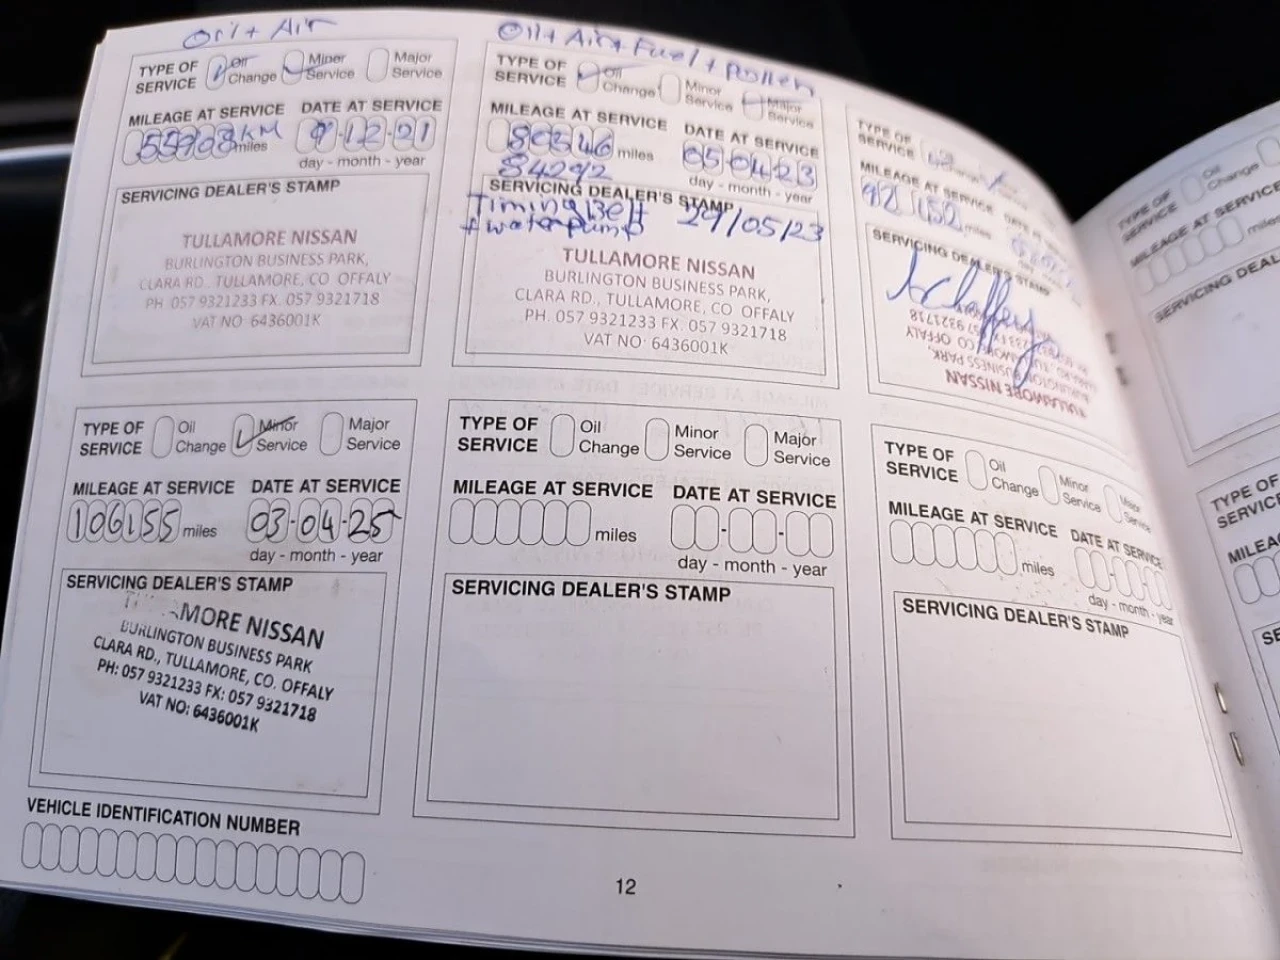 Oil + Air
TYPE OF SERVICE Oil Change Minor Service Major Service
MILEAGE AT SERVICE DATE AT SERVICE
55908KM miles 9-12-21
day - month - year
SERVICING DEALER'S STAMP
TULLAMORE NISSAN
BURLINGTON BUSINESS PARK,
CLARA RD., TULLAMORE, CO OFFALY
PH 057 9321233 FX. 057 9321718
VAT NO 6436001K
Oil + Air + Fuel + Pollen
TYPE OF SERVICE Oil Change Minor Service Major Service
MILEAGE AT SERVICE DATE AT SERVICE
80546 miles 05-04-23
84292 day - month - year
SERVICING DEALER'S STAMP
Timing Belt 29/05/23
+ waterpump
TULLAMORE NISSAN
BURLINGTON BUSINESS PARK,
CLARA RD., TULLAMORE, CO OFFALY
PH. 057 9321233 FX. 057 9321718
VAT NO: 6436001K
TYPE OF SERVICE
MILEAGE AT SERVICE DATE AT
92 152 miles
SERVICING DEALER'S STAMP
TULLAMORE NISSAN
TYPE OF SERVICE Oil Change Minor Service Major Service
MILEAGE AT SERVICE DATE AT SERVICE
106155 miles 03-04-25
day - month - year
SERVICING DEALER'S STAMP
MORE NISSAN
BURLINGTON BUSINESS PARK
CLARA RD., TULLAMORE, CO. OFFALY
PH: 057 9321233 FX: 057 9321718
VAT NO: 6436001K
TYPE OF SERVICE Oil Change Minor Service Major Service
MILEAGE AT SERVICE DATE AT SERVICE
miles
day - month - year
SERVICING DEALER'S STAMP
TYPE OF SERVICE Oil Change Minor Service Major Service
MILEAGE AT SERVICE DATE AT SERVICE
miles
day - month - year
SERVICING DEALER'S STAMP
VEHICLE IDENTIFICATION NUMBER
12
TYPE OF SERVICE Oil Change
MILEAGE AT SERVICE
SERVICING
TYPE OF SERVICE